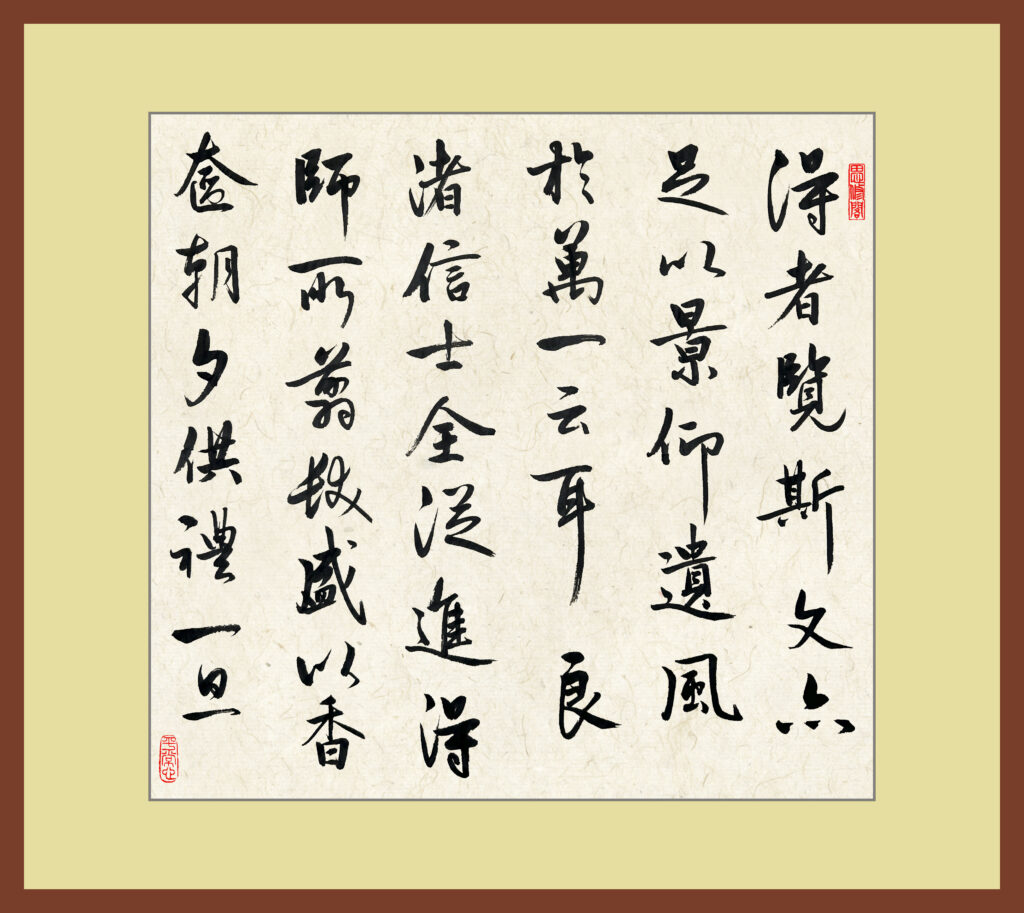 思修閣
得者覽斯文亦
足以景仰遺風
於萬一云耳 良
渚信士全從進得
師所剪髮盛以香
奩朝夕供禮一旦
平常心